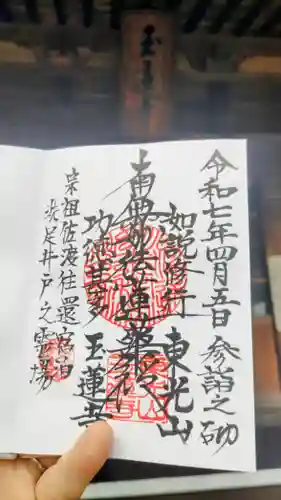 玉蓮寺
令和七年四月五日 参詣之砌
如説修行
東光山
南無妙法蓮華経
功徳甚多
玉蓮寺
宗祖佐渡往還宿泊
御足井戸之霊場